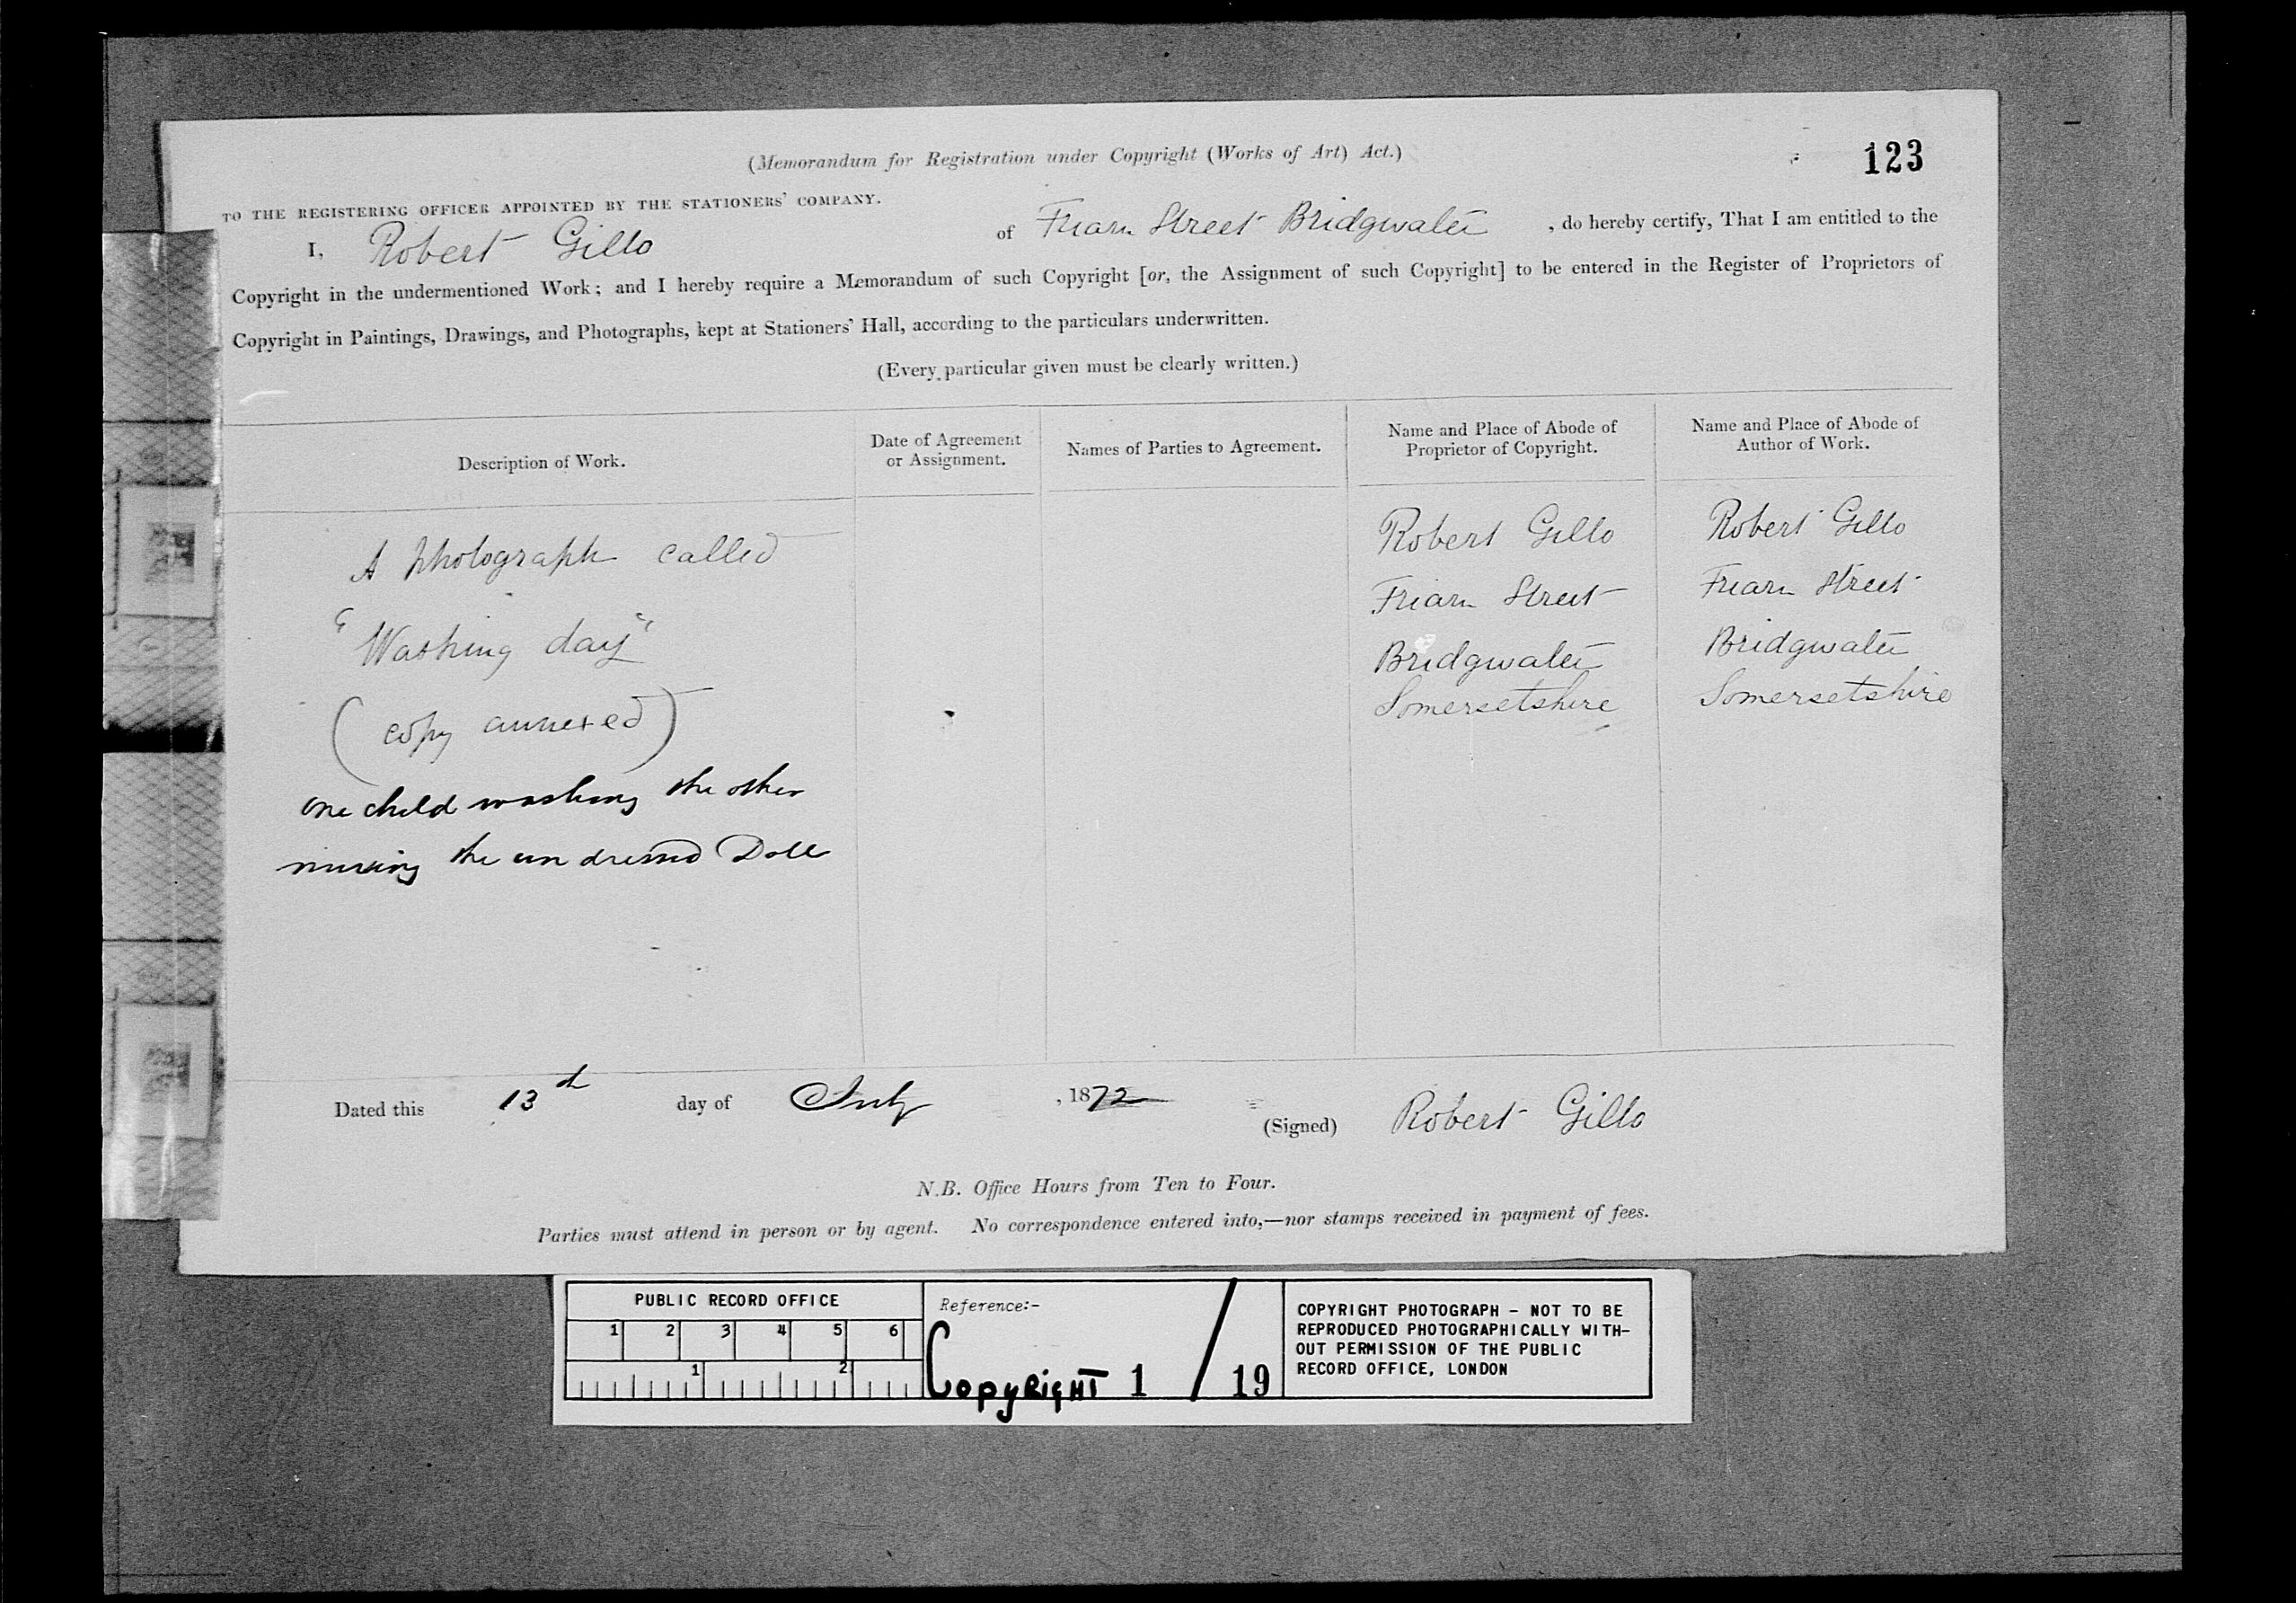 (Memorandum for Registration under Copyright (Works of Art) Act.)
123
TO THE REGISTERING OFFICER APPOINTED BY THE STATIONERS' COMPANY.
I, Robert Gillo of Friarn Street Bridgwater , do hereby certify, That I am entitled to the
Copyright in the undermentioned Work; and I hereby require a Memorandum of such Copyright [or, the Assignment of such Copyright] to be entered in the Register of Proprietors of
Copyright in Paintings, Drawings, and Photographs, kept at Stationers' Hall, according to the particulars underwritten.
(Every particular given must be clearly written.)
Description of Work.
Date of Agreement
or Assignment.
Names of Parties to Agreement.
Name and Place of Abode of
Proprietor of Copyright.
Name and Place of Abode of
Author of Work.
A photograph called
"Washing day"
(copy annexed)
one child washing the other
nursing the undressed Doll
Robert Gillo
Friarn Street
Bridgwater
Somersetshire
Robert Gillo
Friarn Street
Bridgwater
Somersetshire
Dated this 13th day of July , 1872
(Signed) Robert Gillo
N.B. Office Hours from Ten to Four.
Parties must attend in person or by agent. No correspondence entered into,—nor stamps received in payment of fees.
PUBLIC RECORD OFFICE
1 2 3 4 5 6
1 2
Reference:-
Copyright 1 / 19
COPYRIGHT PHOTOGRAPH - NOT TO BE
REPRODUCED PHOTOGRAPHICALLY WITH-
OUT PERMISSION OF THE PUBLIC
RECORD OFFICE, LONDON